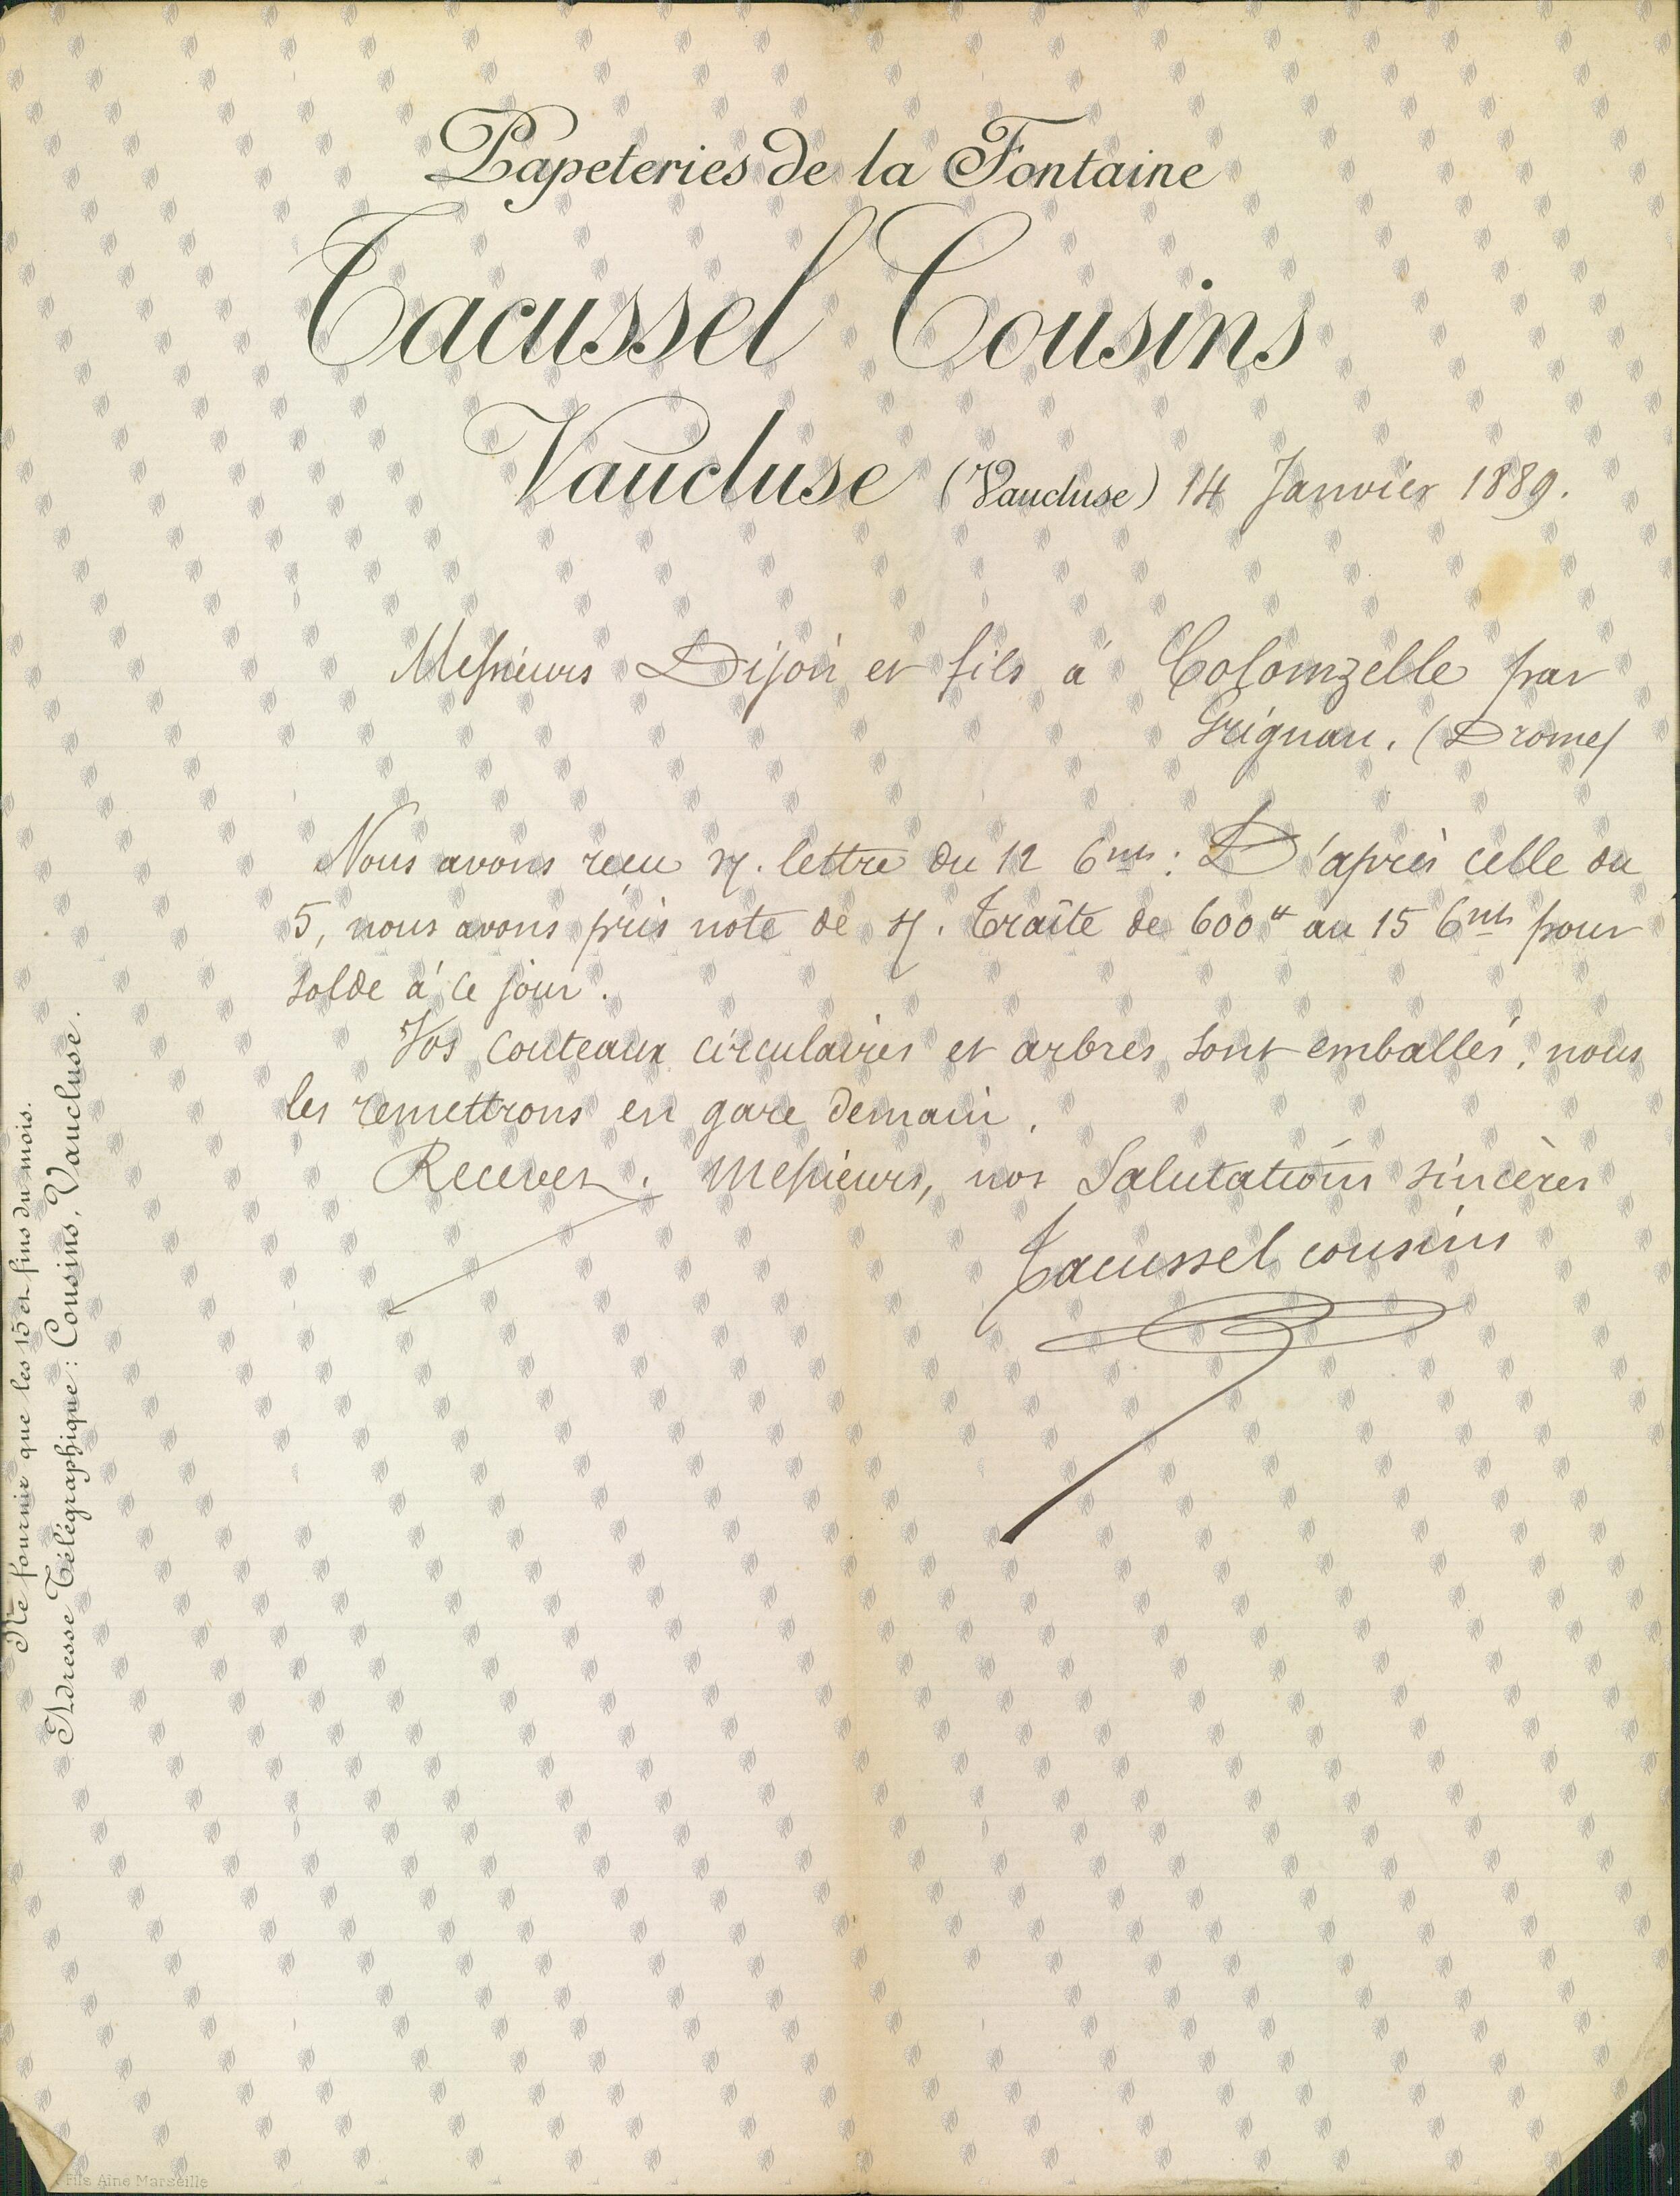 Papeteries de la Fontaine
Tacussel Cousins
Vaucluse (Vaucluse) 14 Janvier 1889.
Messieurs Dijon et fils à Colonzelle par
Grignan. (Drome)
Nous avons reçu V/. lettre du 12 Cnt : D'après celle du
5, nous avons pris note de V/. traîte de 600 au 15 Cnt pour
solde à ce jour.
Vos couteaux circulaires et arbres sont emballés, nous
les remettrons en gare demain.
Recevez, Messieurs, nos Salutations sincères
Tacussel cousins
Ne fournir que les 15 et fins du mois.
Adresse Télégraphique : Cousins, Vaucluse.
Fils Aine Marseille